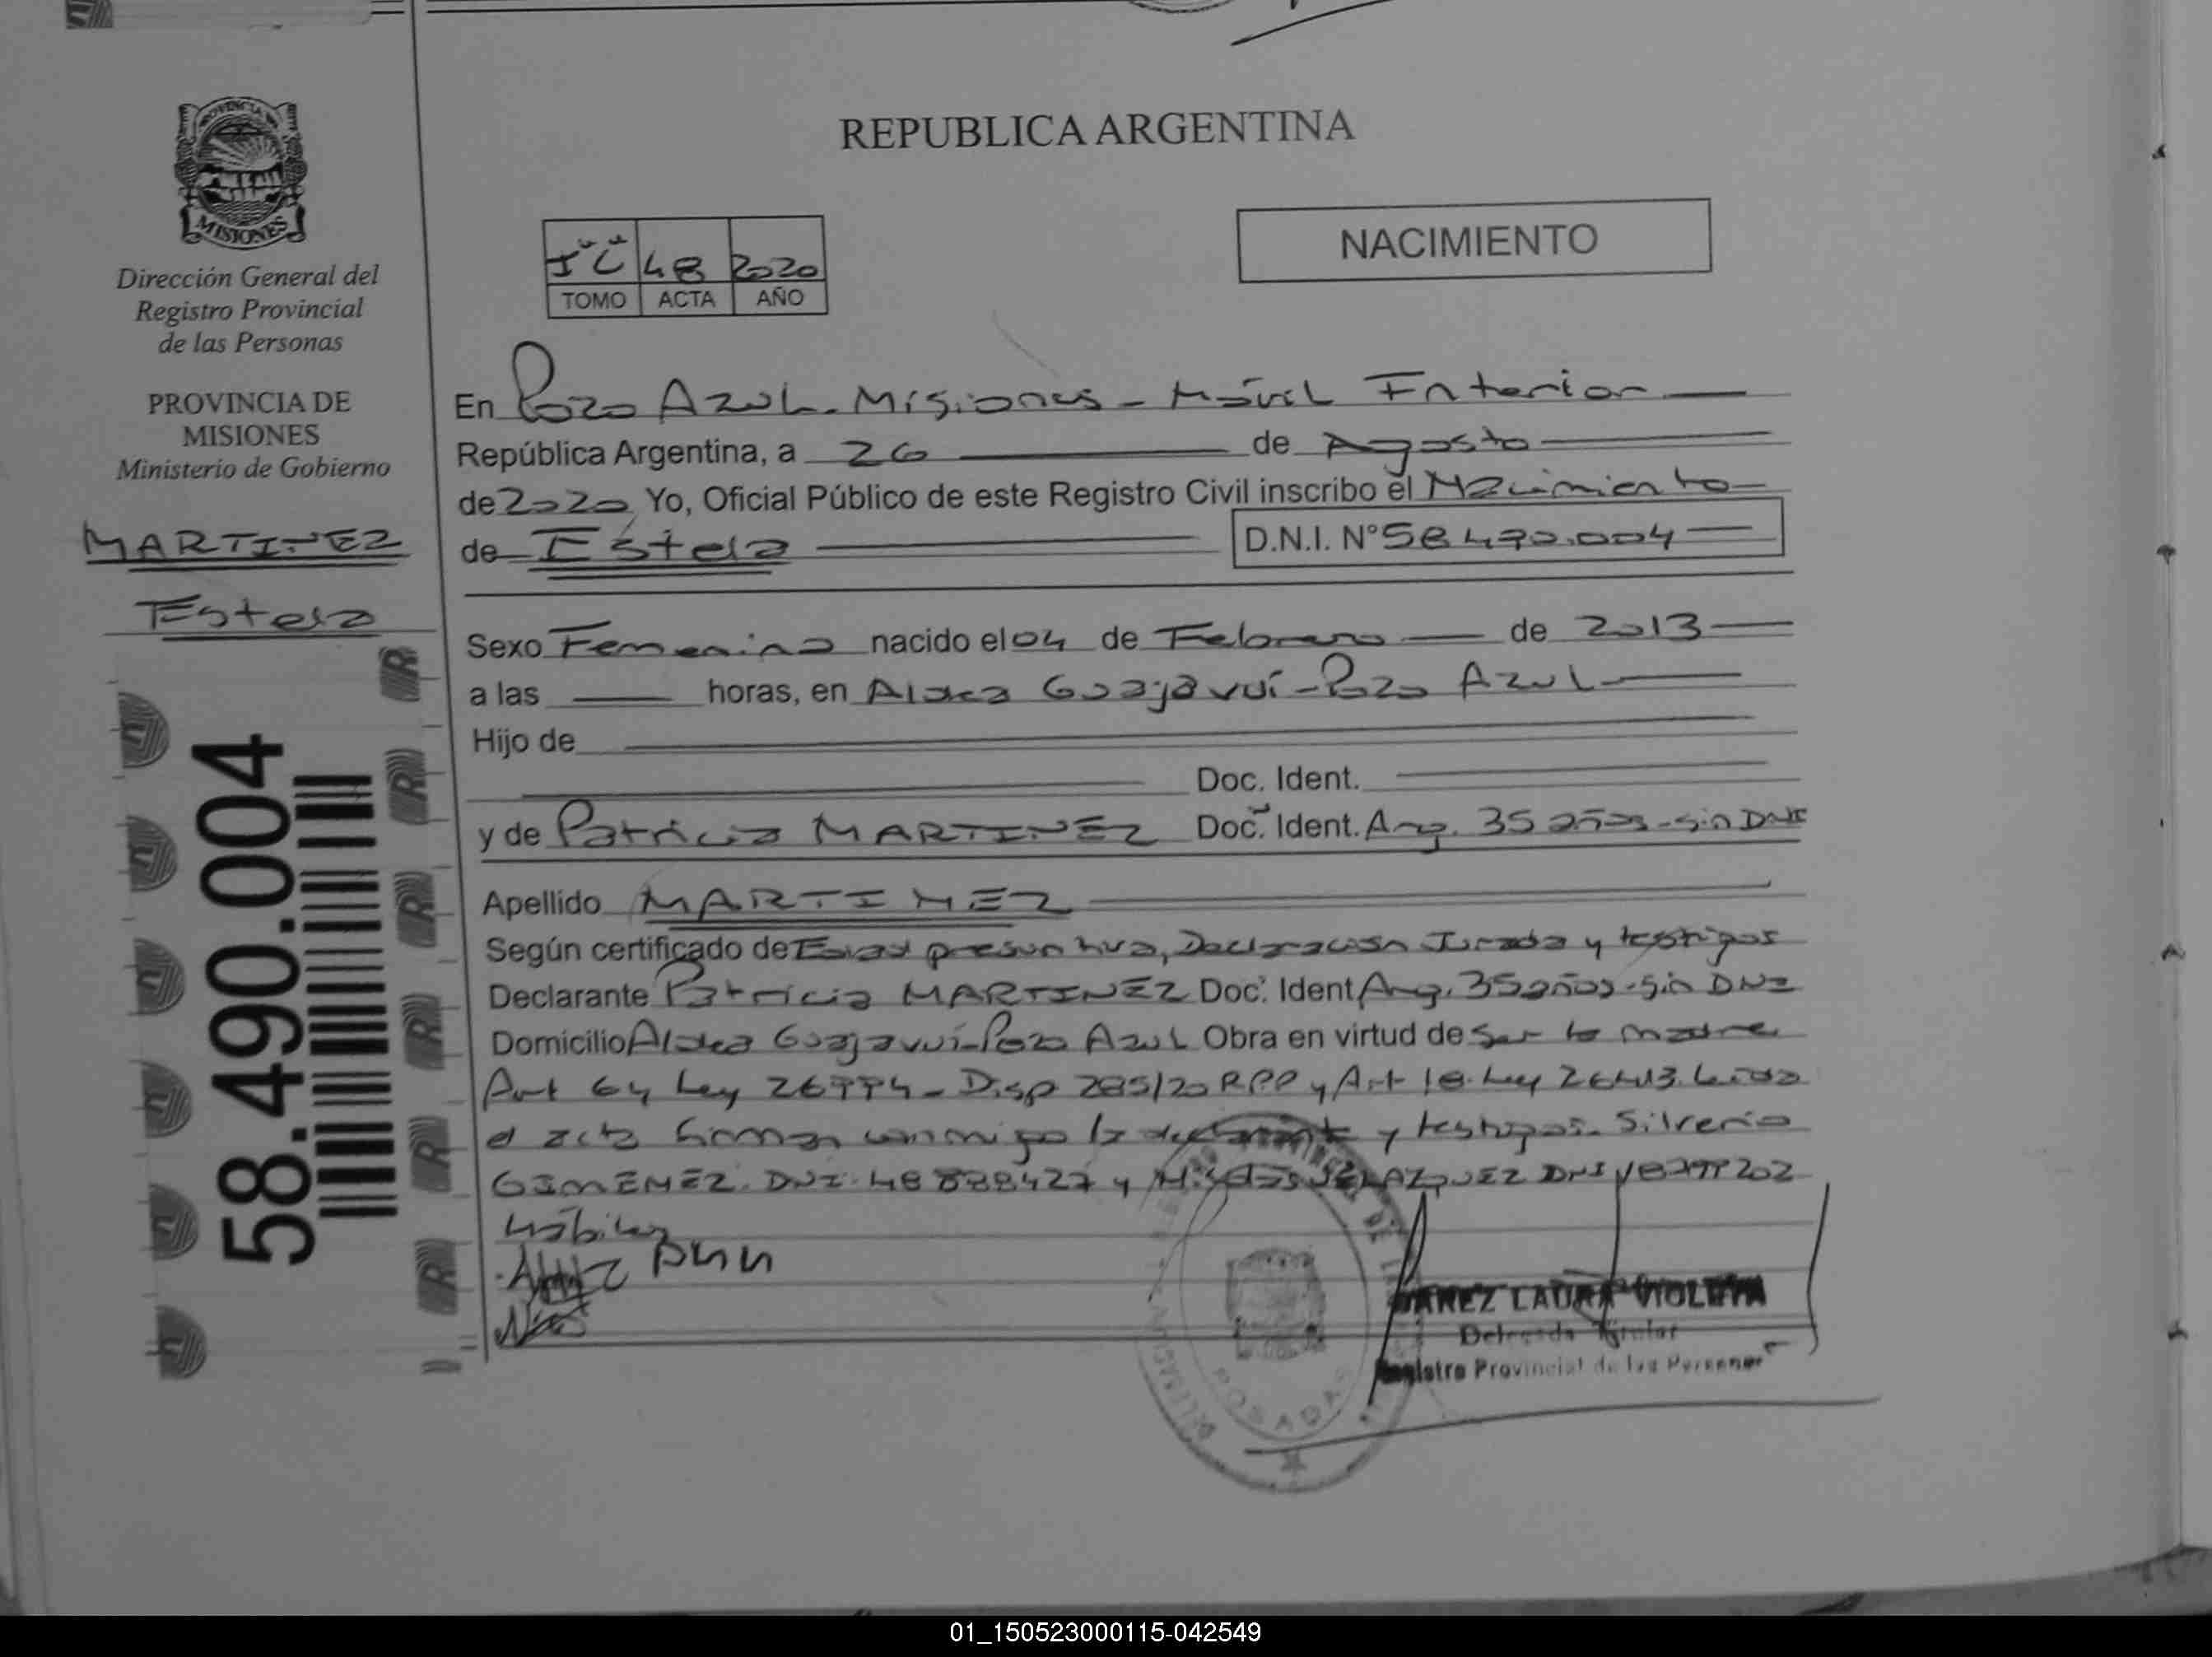 REPUBLICA ARGENTINA
PROVINCIA
MISIONES
NACIMIENTO
48 2020
TOMO ACTA AÑO
Dirección General del
Registro Provincial
de las Personas
PROVINCIA DE
MISIONES
Ministerio de Gobierno
MARTINEZ
Estela
58.490.004
En Pozo Azul - Misiones - Móvil Interior
República Argentina, a 26 de Agosto
de 2020 Yo, Oficial Público de este Registro Civil inscribo el Nacimiento
de Estela D.N.I. N° 58.490.004
Sexo Femenino nacido el 04 de Febrero de 2013
a las horas, en Aldea Guajavuí - Pozo Azul
Hijo de
Doc. Ident.
y de Patricia MARTINEZ Doc. Ident. Arg. 35 años - sin DNI
Apellido MARTINEZ
Según certificado de Edad presuntiva, Declaración Jurada y testigos
Declarante Patricia MARTINEZ Doc. Ident Arg. 35 años - sin DNI
Domicilio Aldea Guajavuí - Pozo Azul Obra en virtud de ser la madre
Art 64 Ley 26994 - Disp 285/20 RPP y Art 18 Ley 26413. Leída
el acta firman conmigo la declarante y testigos. Silverio
GIMENEZ. DNI. y VELAZQUEZ DNI
hábiles
LAURA VIOLETA
Delegada Titular
Registro Provincial de las Personas
POSADAS
01_150523000115-042549